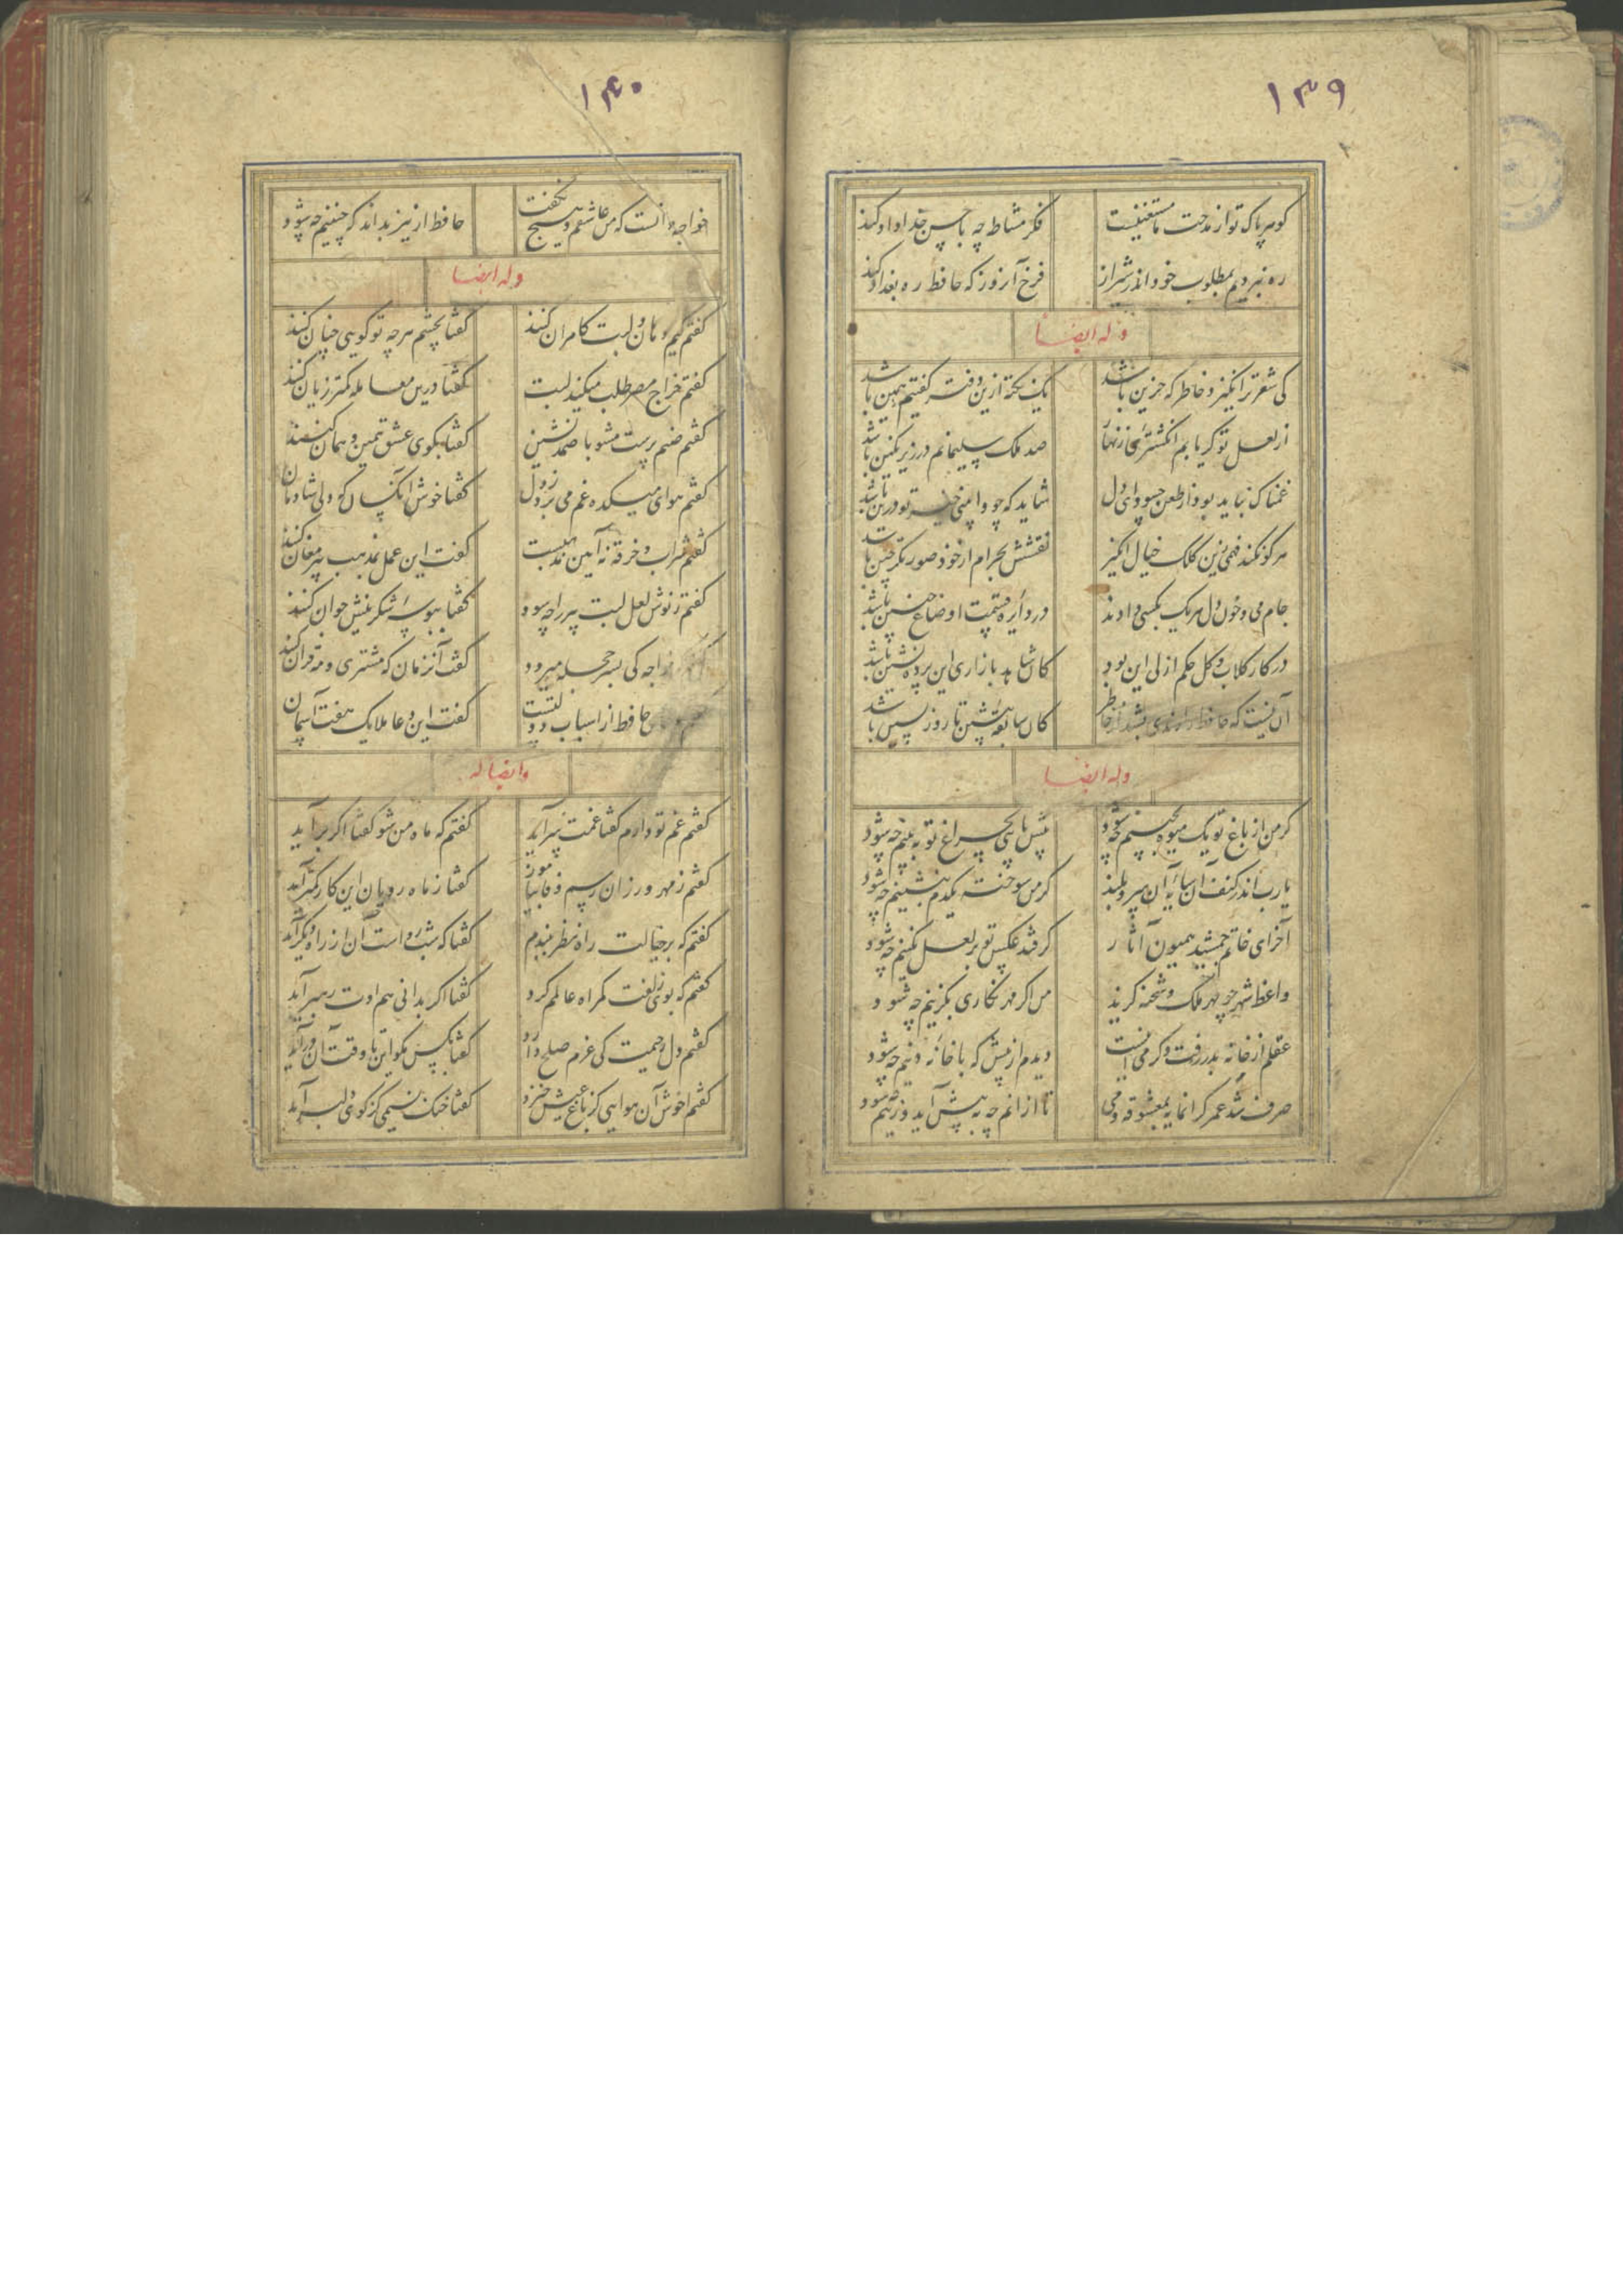 ۱۳۹
گوهر پاک تو از مدحت ما مستغنیست
فکر مشاطه چه با حسن خداداد کند
ره نبردیم بمطلوب خود اندر شیراز
خرم آنروز که حافظ ره بغداد کند
وله ایضا
کی شعر تر انگیزد خاطر که حزین باشد
یک نکته ازین دفتر گفتیم همین باشد
از لعل تو گر یابم انگشتری زنهار
صد ملک سلیمانم در زیر نگین باشد
غمناک نباید بود از طعن حسود ای دل
شاید که چو وابینی خیر تو درین باشد
هر کو نکند فهمی زین کلک خیال انگیز
نقشش بحرام ار خود صورتگر چین باشد
جام می و خون دل هر یک بکسی دادند
در دایره قسمت اوضاع چنین باشد
در کار گلاب و گل حکم ازلی این بود
کان شاهد بازاری این پرده نشین باشد
آن نیست که حافظ را رندی بشد از خاطر
کان سابقه پیشین تا روز پسین باشد
وله ایضا
گر من از باغ تو یک میوه بچینم چه شود
پیش پایی بچراغ تو ببینم چه شود
یارب اندر کنف سایه آن سرو بلند
گر من سوخته یکدم بنشینم چه شود
آخر ای خاتم جمشید همیون آثار
گر فتد عکس تو بر لعل نگینم چه شود
واعظ شهر چو مهر ملک و شحنه گزید
من اگر مهر نگاری بگزینم چه شود
عقلم از خانه بدر رفت و گر می اینست
دیدم از پیش که با خانه دینم چه شود
صرف شد عمر گرانمایه بمعشوقه و می
تا از انم چه به پیش آید و زینم چه شود
۱۴۰
خواجه دانست که من عاشقم و هیچ نگفت
حافظ ار نیز بداند که چنینم چه شود
وله ایضا
گفتم کیم دهان و لبت کامران کنند
گفتا بچشم هرچه تو گویی چنان کنند
گفتم خراج مصر طلب میکند لبت
گفتا درین معامله کمتر زیان کنند
گفتم صنم پرست مشو با صمد نشین
گفتا بکوی عشق همین و همان کنند
گفتم هوای میکده غم می برد ز دل
گفتا خوش آن کسان که دلی شادمان کنند
گفتم شراب و خرقه نه آیین مذهبست
گفت این عمل بمذهب پیر مغان کنند
گفتم ز نوش لعل لبت پیر را چه سود
گفتا ببوسه شکرینش جوان کنند
خواجه کی بسر حجله میرود
گفت آنزمان که مشتری و مه قران کنند
حافظ از اسباب دولتست
گفت این دعا ملایک هفت آسمان
وایضا له
گفتم غم تو دارم گفتا غمت سرآید
گفتم که ماه من شو گفتا اگر برآید
گفتم ز مهر ورزان رسم وفا بیاموز
گفتا ز ماه رویان این کار کمتر آید
گفتم که بر خیالت راه نظر ببندم
گفتا که شب رو است آن از راه دیگر آید
گفتم که بوی زلفت گمراه عالمم کرد
گفتا اگر بدانی هم اوت رهبر آید
گفتم دل رحیمت کی عزم صلح دارد
گفتا بکس مگو این تا وقت آن درآید
گفتم خوش آن هوایی کز باغ عیش خیزد
گفتا خنک نسیمی کز کوی دلبر آید